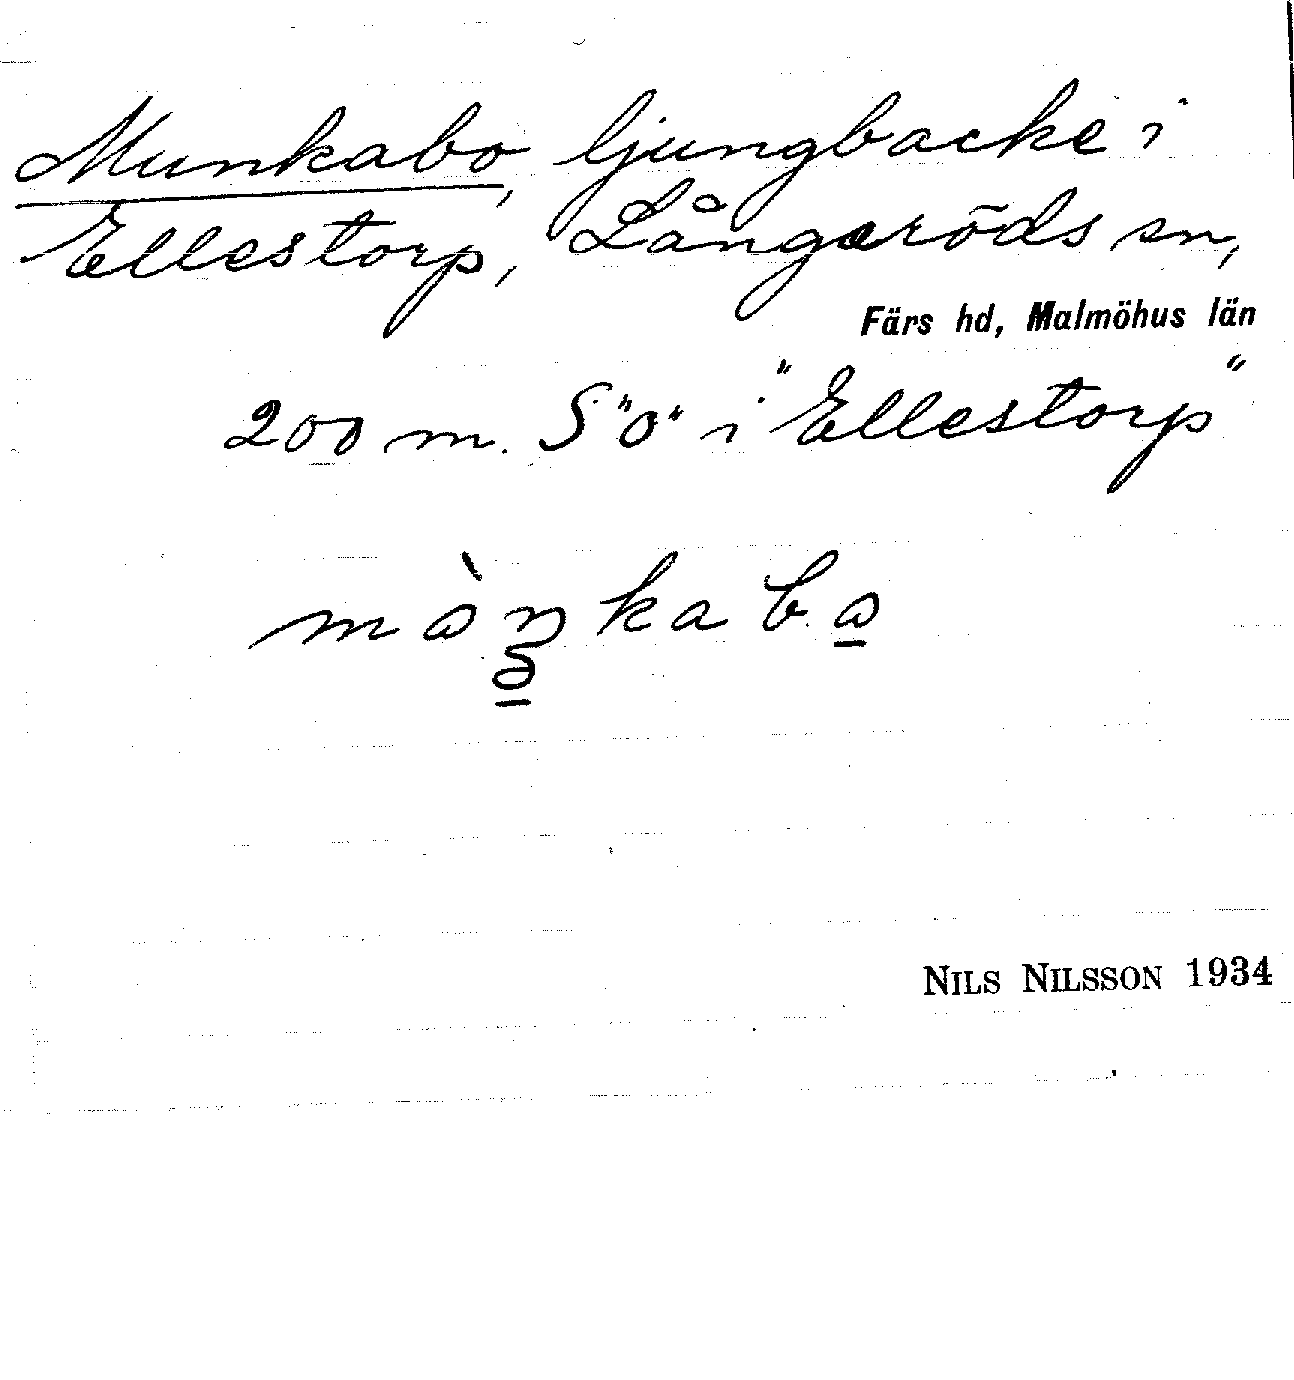 Munkabo, ljungbacke i
Ellestorp, Långaröds sn,
Färs hd, Malmöhus län
200 m. S "o" i "Ellestorp"
NILS NILSSON 1934